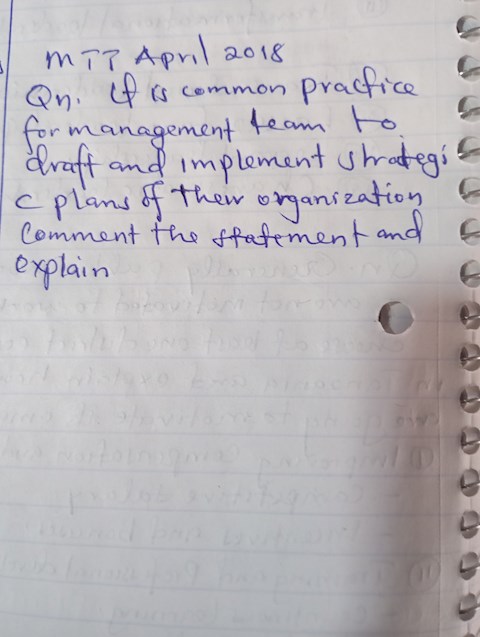 MTT April 2018
Qn. It is common practice
for management team to
draft and implement strategi
c plans of their organization
Comment the statement and
explain